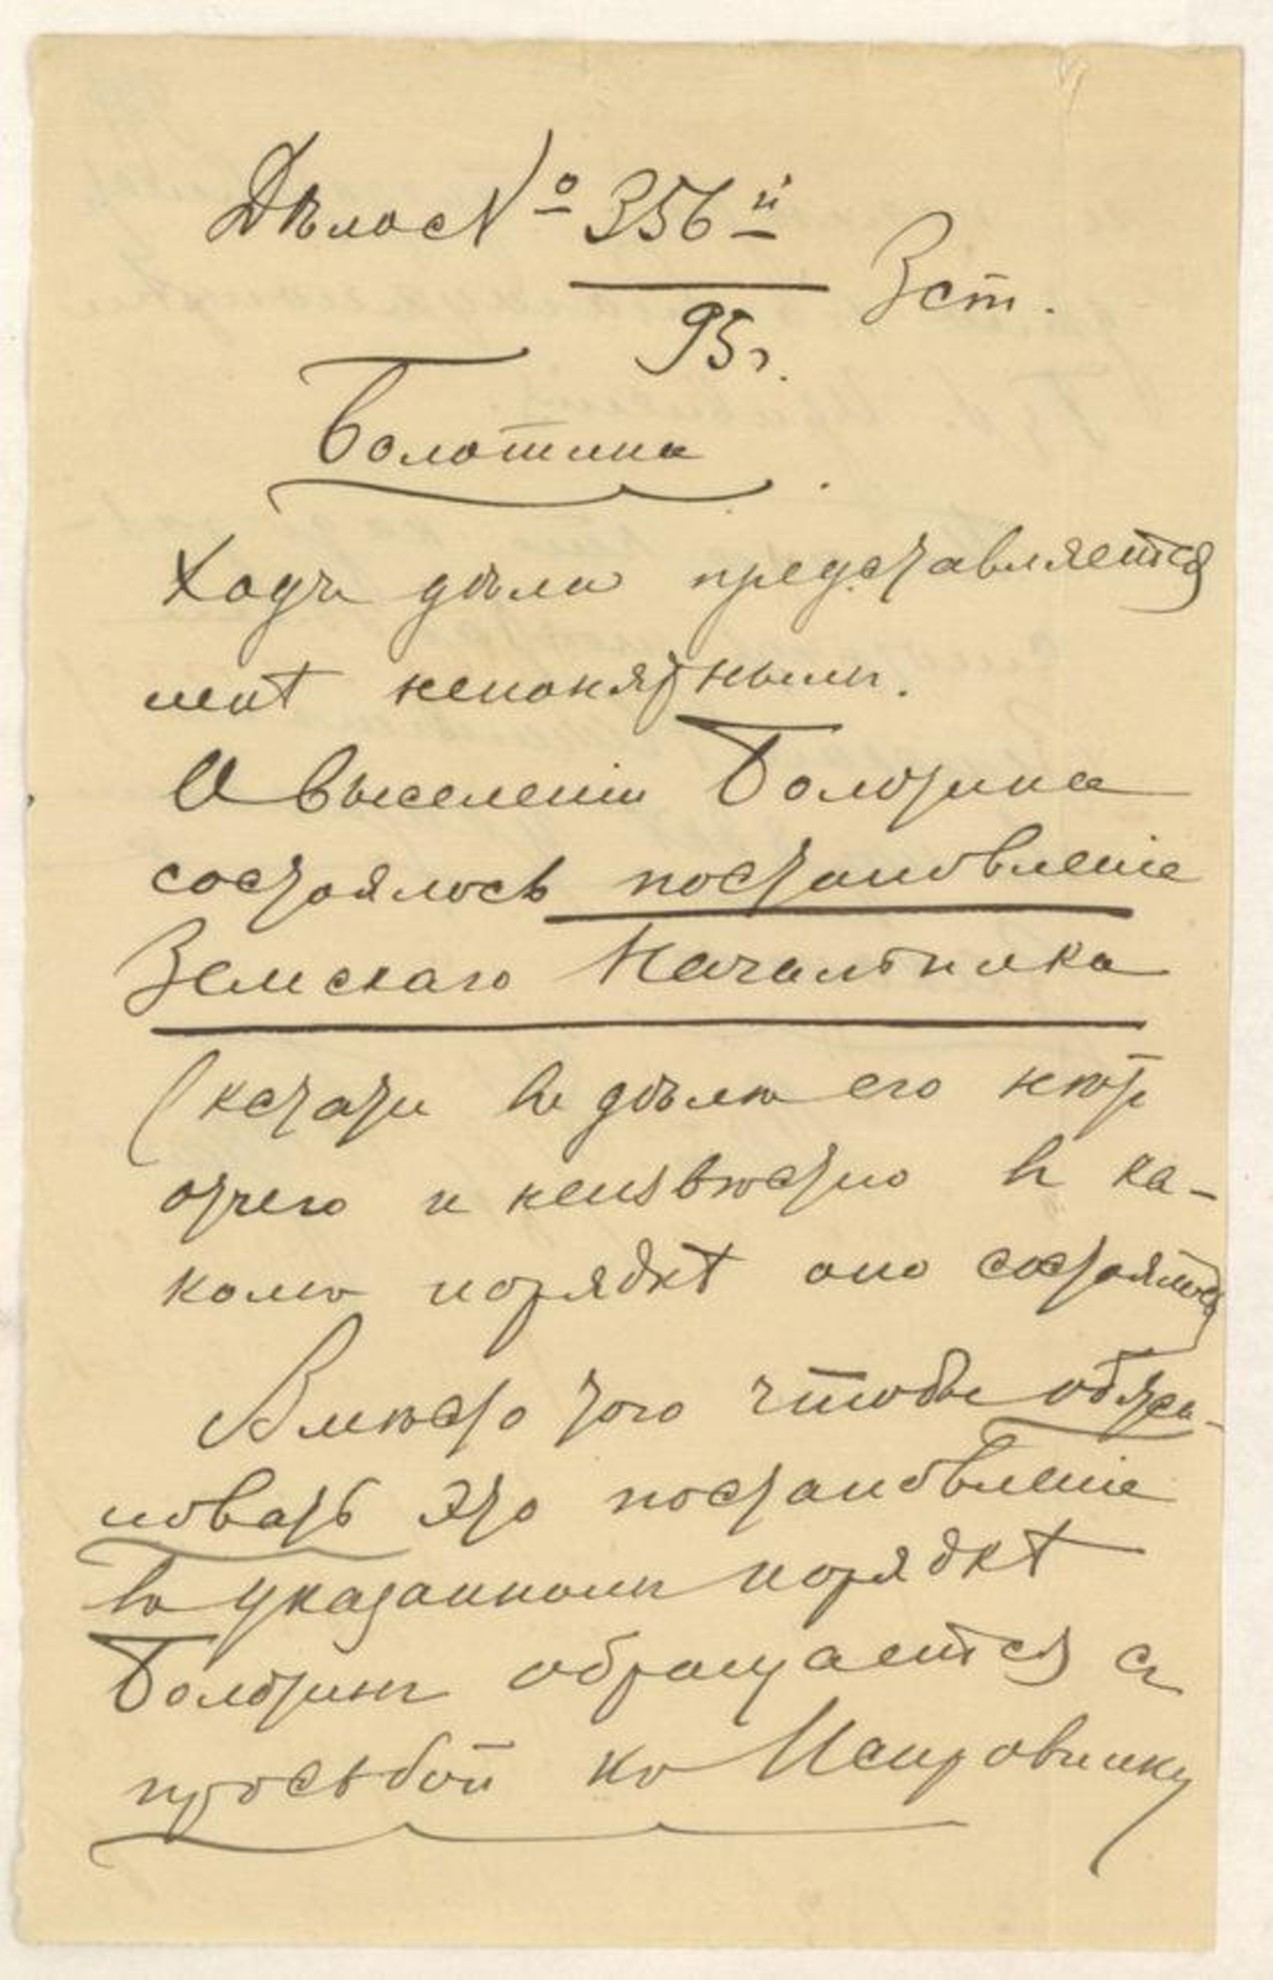 Дѣло № 356й
95г.
3 ст.
Болотина.
Ходъ дѣла представляется
мнѣ непонятнымъ.
О выселеніи Болотина
состоялось постановленіе
Земскаго Начальника
(кстати въ дѣлѣ его нѣтъ
отчего и неизвѣстно въ ка-
комъ порядкѣ оно состоялось)
Вмѣсто того чтобы обжа-
ловать это постановленіе
въ указанномъ порядкѣ
Болотинъ обращается съ
просьбой къ Исправнику